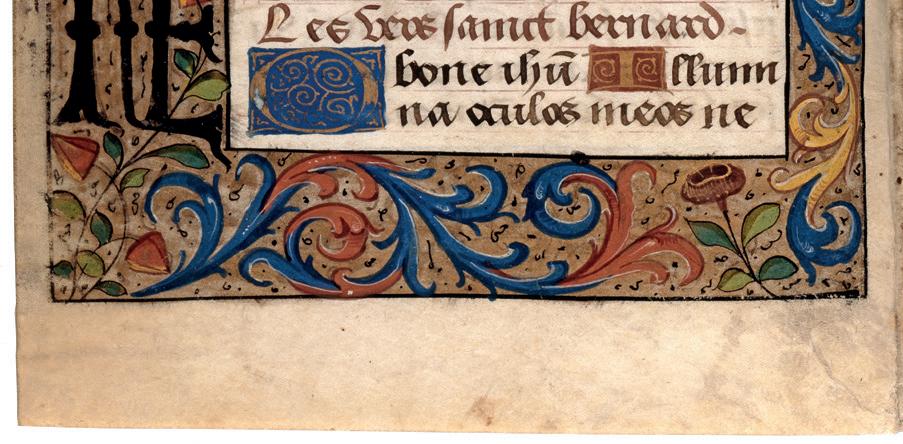 Les vers sainct bernard.
O bone ihū Illumi
na oculos meos ne